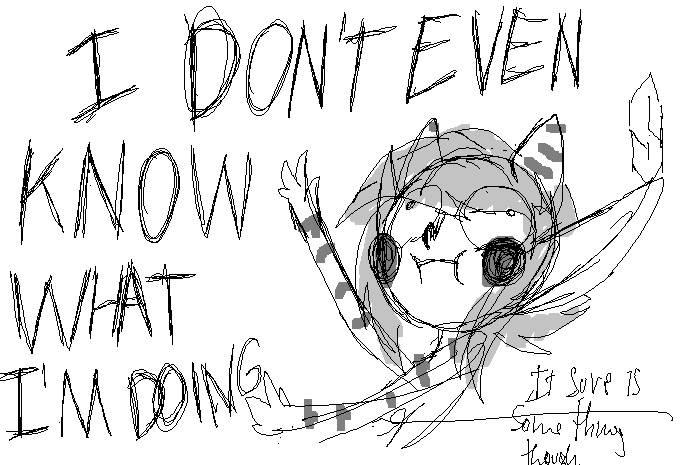 I DON'T EVEN
KNOW
WHAT
I'M DOING
It sure is
something
though.